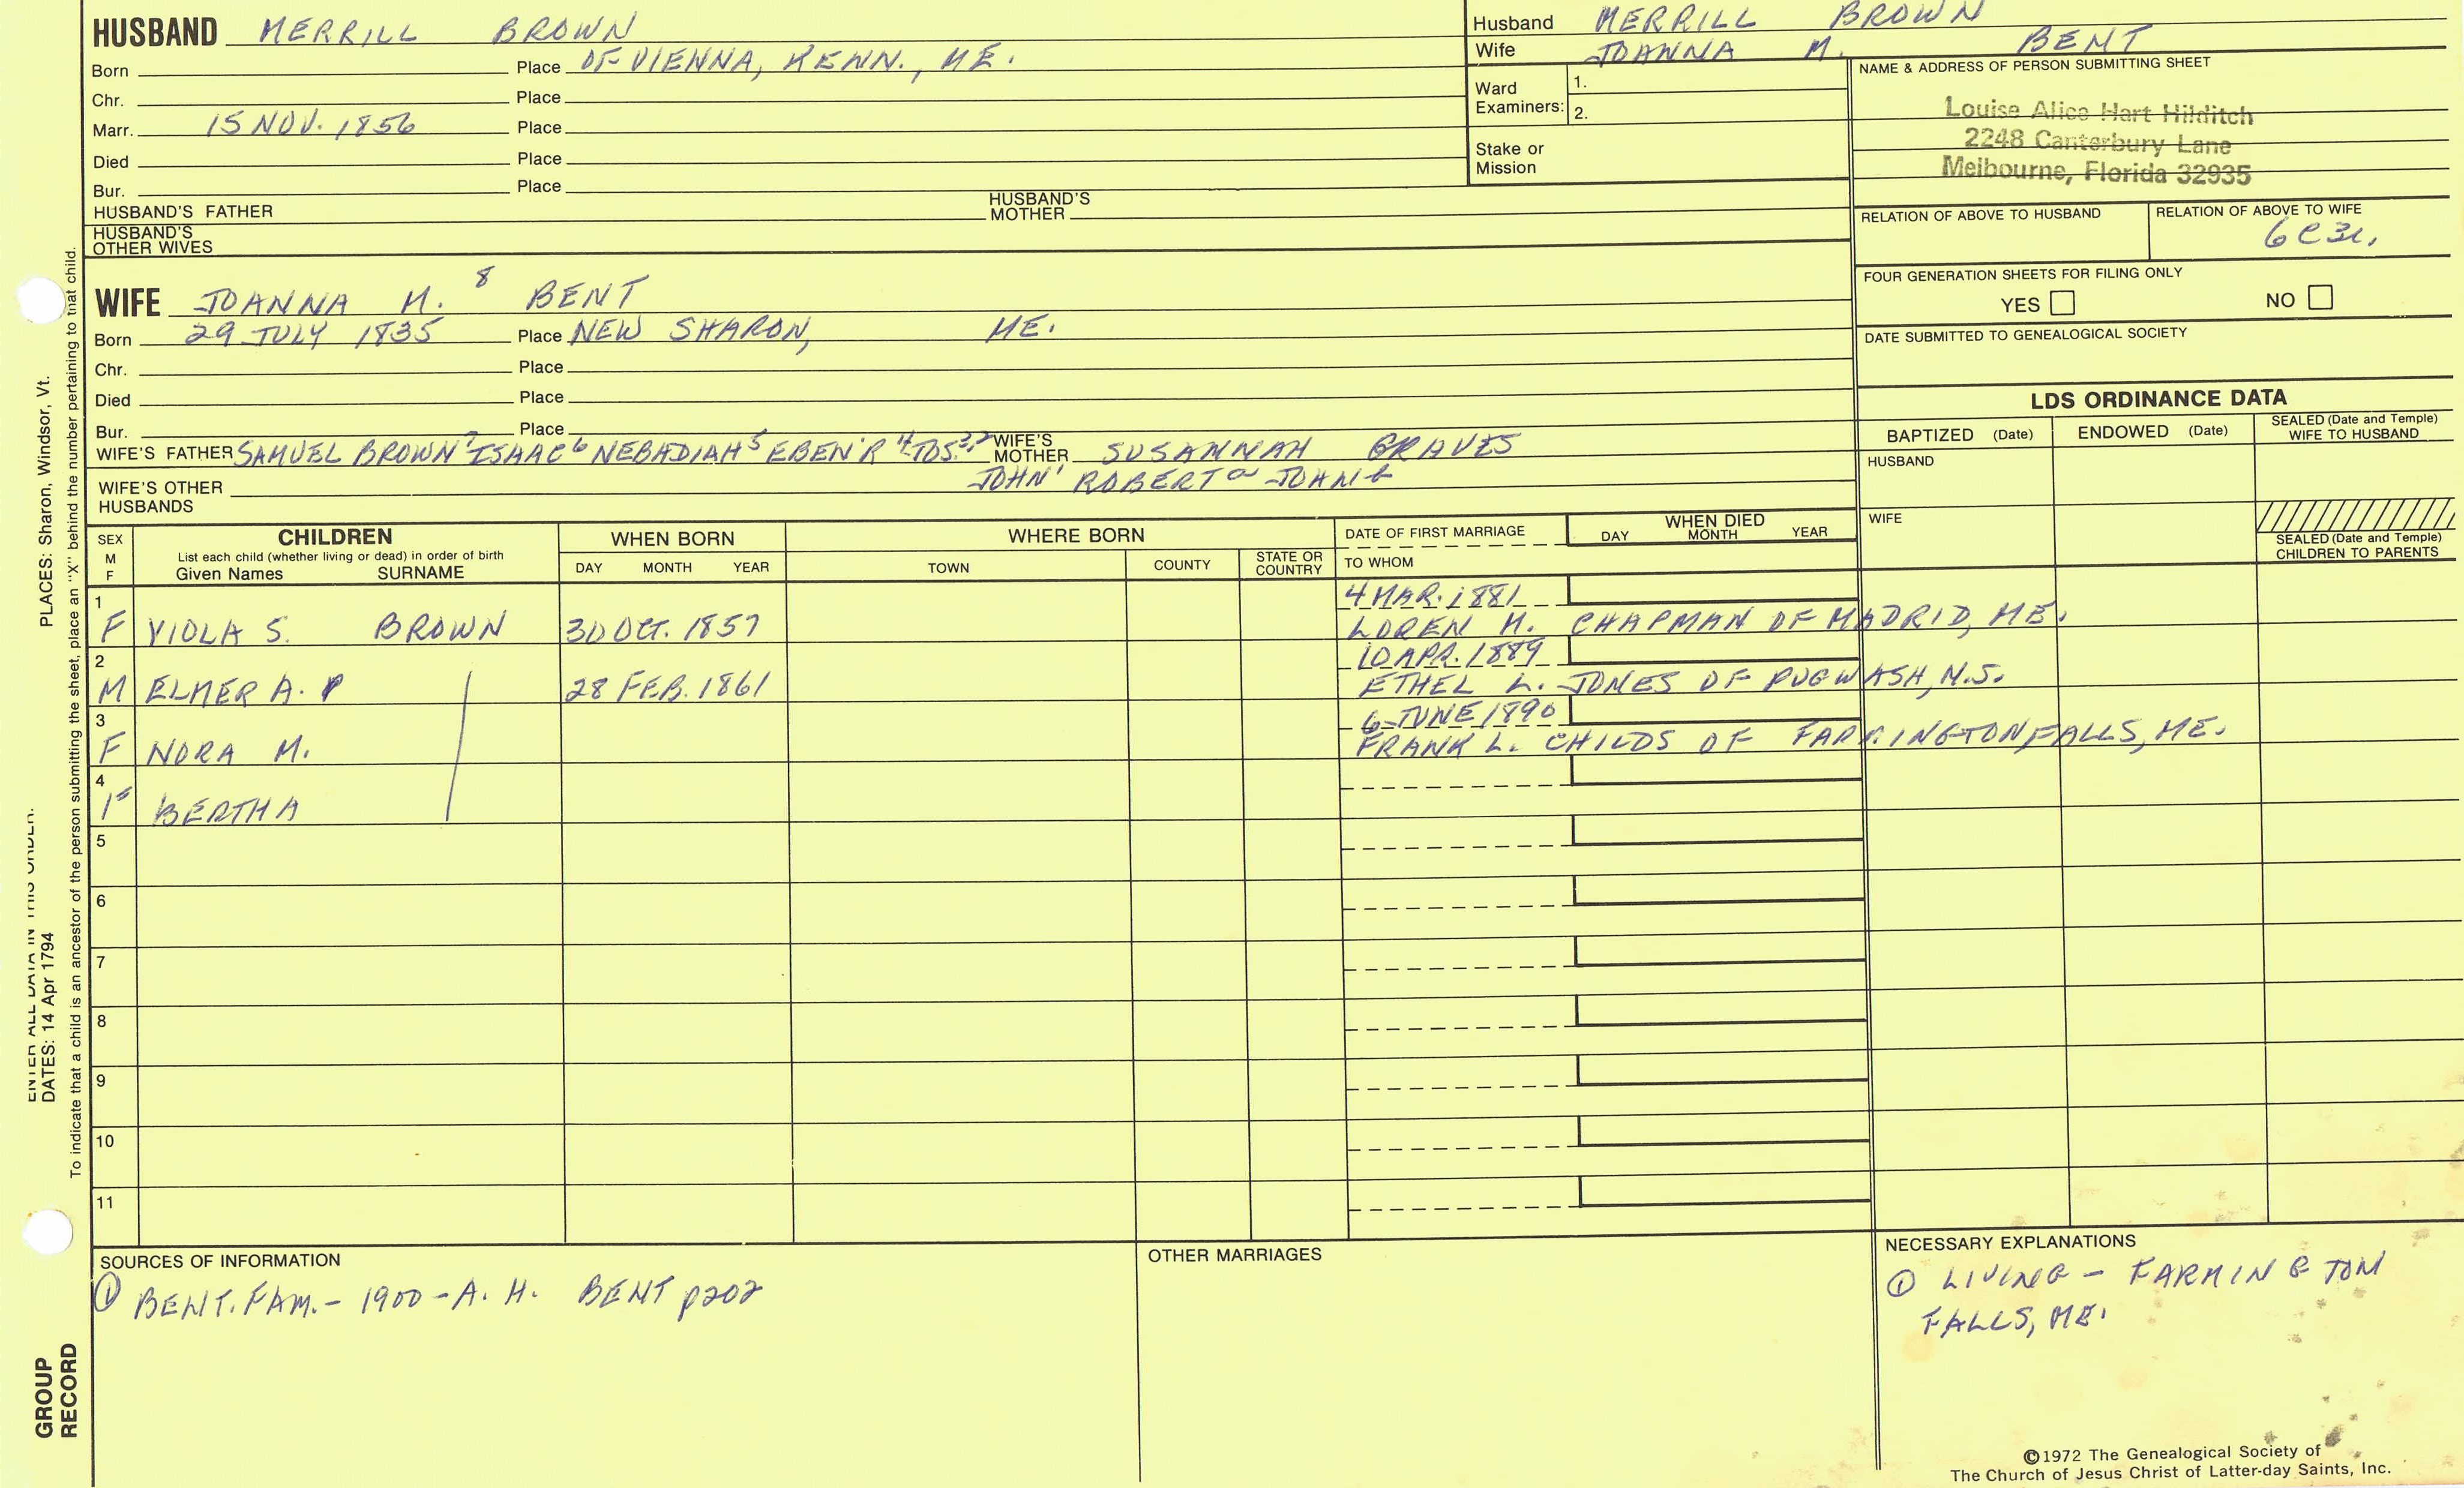 HUSBAND MERRILL BROWN
Born Place OF VIENNA, KENN., ME.
Chr. Place
Marr. 15 NOV. 1856 Place
Died Place
Bur. Place
HUSBAND'S FATHER HUSBAND'S MOTHER
HUSBAND'S OTHER WIVES
Husband MERRILL BROWN
Wife JOANNA M. BENT
Ward Examiners: 1.
2.
Stake or Mission
NAME & ADDRESS OF PERSON SUBMITTING SHEET
Louise Alice Hart Hilditch
2248 Canterbury Lane
Melbourne, Florida 32935
RELATION OF ABOVE TO HUSBAND RELATION OF ABOVE TO WIFE
FOUR GENERATION SHEETS FOR FILING ONLY
YES NO
DATE SUBMITTED TO GENEALOGICAL SOCIETY
WIFE JOANNA M. 8 BENT
Born 29 JULY 1835 Place NEW SHARON, ME.
Chr. Place
Died Place
Bur. Place
WIFE'S FATHER SAMUEL BROWN 7 ISAAC 6 NEBADIAH 5 EBEN'R 4 JOS. 3,2 WIFE'S MOTHER SUSANNAH GRAVES
JOHN 1 ROBERT a JOHN b
WIFE'S OTHER HUSBANDS
LDS ORDINANCE DATA
BAPTIZED (Date) ENDOWED (Date) SEALED (Date and Temple) WIFE TO HUSBAND
HUSBAND
WIFE
SEALED (Date and Temple) CHILDREN TO PARENTS
SEX M F CHILDREN WHEN BORN WHERE BORN DATE OF FIRST MARRIAGE WHEN DIED
List each child (whether living or dead) in order of birth
Given Names SURNAME DAY MONTH YEAR TOWN COUNTY STATE OR COUNTRY TO WHOM DAY MONTH YEAR
1 4 MAR. 1881
F VIOLA S. BROWN 30 OCT. 1857 LOREN M. CHAPMAN OF MADRID, ME.
2 10 APR. 1889
M ELMER A. 28 FEB. 1861 ETHEL L. JONES OF PUGWASH, N.S.
3 6 JUNE 1890
F NORA M. FRANK L. CHILDS OF FARMINGTON FALLS, ME.
4
F BERTHA
5
6
7
8
9
10
11
SOURCES OF INFORMATION
① BENT. FAM. - 1900 - A. H. BENT p202
OTHER MARRIAGES
NECESSARY EXPLANATIONS
① LIVING - FARMINGTON
FALLS, ME.
©1972 The Genealogical Society of
The Church of Jesus Christ of Latter-day Saints, Inc.
ENTER ALL DATA IN THIS ORDER:
DATES: 14 Apr 1794 PLACES: Sharon, Windsor, Vt.
To indicate that a child is an ancestor of the person submitting the sheet, place an "X" behind the number pertaining to that child.
GROUP
RECORD